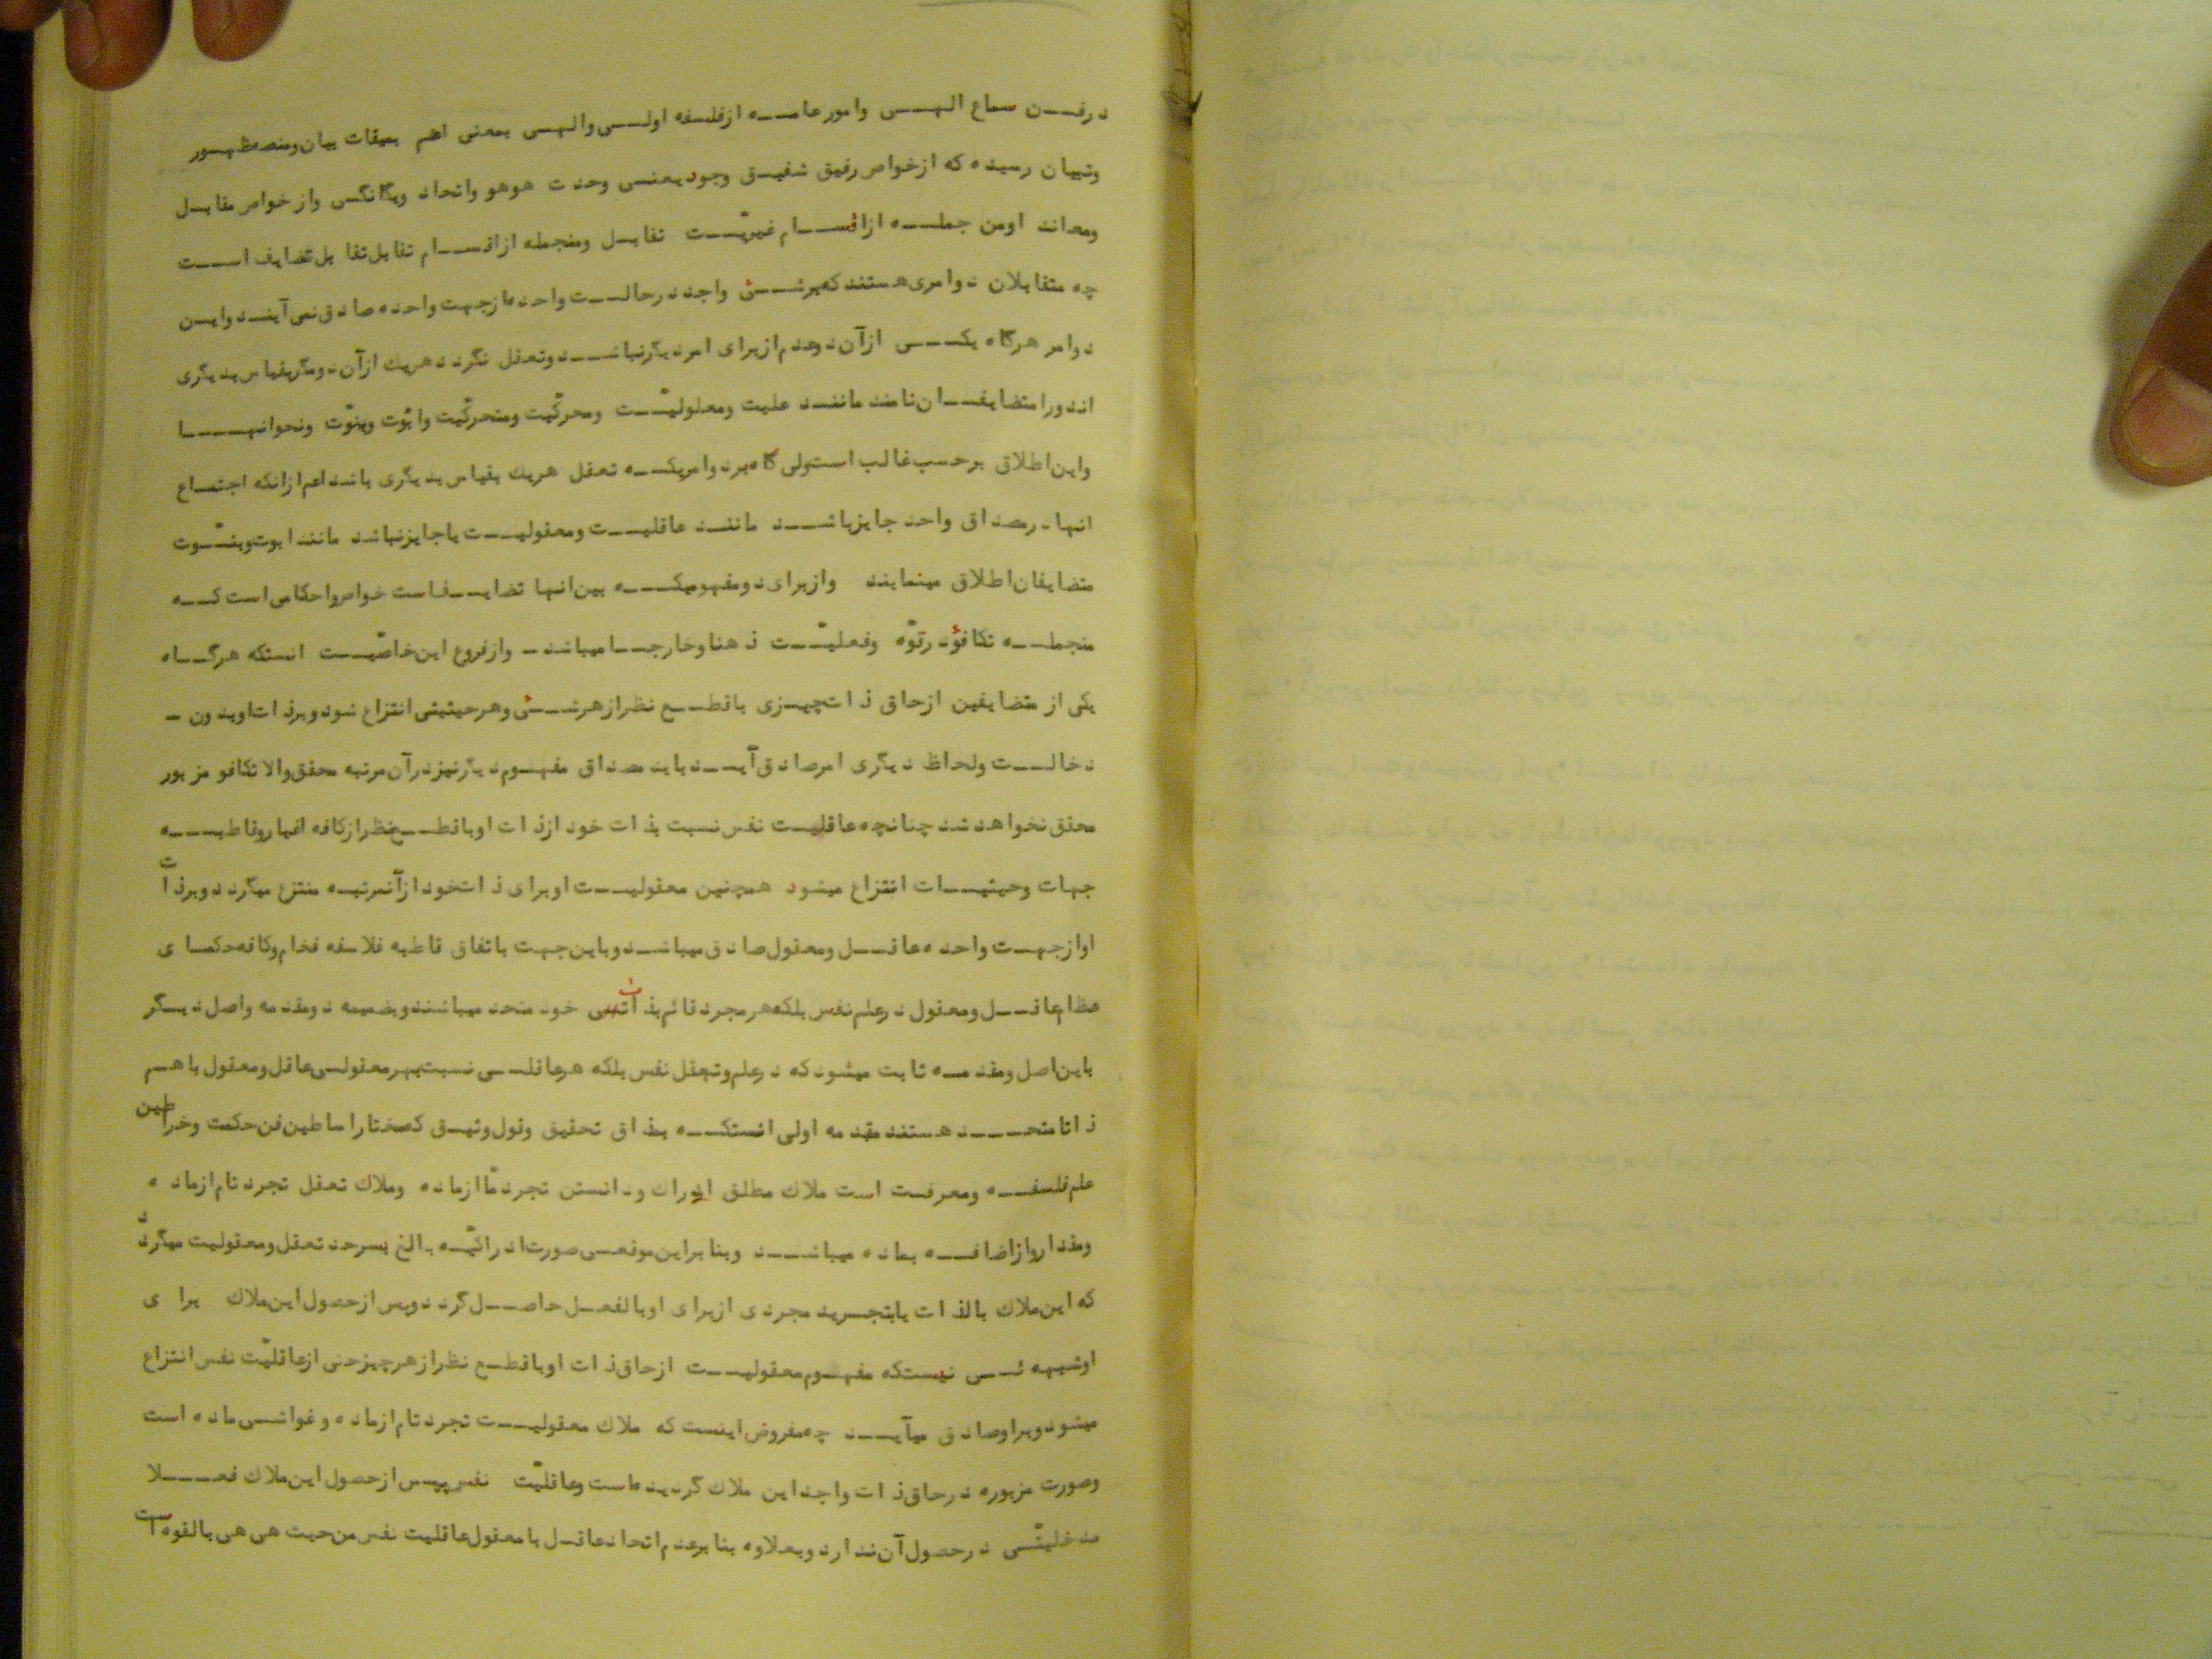 در فن سماع الهی و امور عامه از فلسفه اولی و الهی بمعنی اعم بمیقات بیان و منصه ظهور
و تبیان رسیده که از خواص رفیق شفیق وجود یعنی وحدت هوهو و اتحاد و یگانگی و از خواص مقابل
و معاند او من جمله از اقسام غیریّت تقابل و منجمله از اقسام تقابل تقابل تضایف است
چه متقابلان دو امری هستند که بر شئ واحد در حالت واحده از جهت واحده صادق نمی آیند و این
دو امر هرگاه یکی از آن دو عدم از برای امر دیگر نباشد و تعقل نگردد هریک از آن دو مگر بقیاس بدیگری
اندو را متضایفان نامند مانند علیت و معلولیّت و محرکّیت و متحرکّیت و ابوّت و بنوّت و نحو انها
و این اطلاق بر حسب غالب است ولی گاه بر دو امریکه تعقل هریک بقیاس بدیگری باشد اعم از انکه اجتماع
انها در مصداق واحد جایز باشد مانند عاقلیت و معقولیت یا جایز نباشد مانند ابوت و بنّوت
متضایفان اطلاق مینمایند و از برای دو مفهومیکه بین انها تضایف است خواص و احکامی است که
منجمله تکافؤ در قوّه و فعلیّت ذهنا و خارجا میباشد - و از فروع این خاصّیت انستکه هرگاه
یکی از متضایفین از حاق ذات چیزی با قطع نظر از هر شئ و هر حیثیتی انتزاع شود و بر ذات او بدون -
دخالت و لحاظ دیگری امر صادق آید باید مصداق مفهوم دیگر نیز در آن مرتبه محقق والا تکافو مزبور
محقق نخواهد شد چنانچه عاقلیت نفس نسبت بذات خود از ذات او با قطع نظر از کافه اغیار و قاطبه
جهات و حیثیات انتزاع میشود همچنین معقولیت او برای ذات خود از آنمرتبه منتزع میگردد و بر ذات
او از جهت واحده عاقل و معقول صادق میباشد و باین جهت باتفاق قاطبه فلاسفه فخام و کافه حکمای
عظام عاقل و معقول در علم نفس بلکه هر مجرد قائم بذات خود متحد میباشند و بضمیمه دو مقدمه و اصل دیگر
باین اصل و مقدمه ثابت میشود که در علم و تعقل نفس بلکه هر عاقلی نسبت بهر معقولی عاقل و معقول باهم
ذاتا متحد هستند مقدمه اولی انستکه بمذاق تحقیق و قول وثیق که مختار اساطین فن حکمت و خراطین
علم فلسفه و معرفت است ملاک مطلق ادراک و دانستن تجرد مّا از ماده و ملاک تعقل تجرد تام از ماده
و مقدار و از اضافه بماده میباشد و بنا بر این موقعی صورت ادراکیّه بالغ بسرحد تعقل و معقولیت میگردد
که این ملاک بالذات یا بتجرید مجردی از برای او بالفعل حاصل گردد و پس از حصول این ملاک برای
او شبهه ئی نیست که مفهوم معقولیت از حاق ذات او با قطع نظر از هر چیز حتی از عاقلیّت نفس انتزاع
میشود و بر او صادق میآید چه مفروض اینست که ملاک معقولیت تجرد تام از ماده و غواشی ماده است
و صورت مزبوره در حاق ذات واجد این ملاک گردیده است و عاقلیّت نفس پس از حصول این ملاک فعلا
مدخلیتّی در حصول آن ندارد و بعلاوه بنا بر عدم اتحاد عاقل با معقول عاقلیت نفس من حیث هی هی بالقوه است